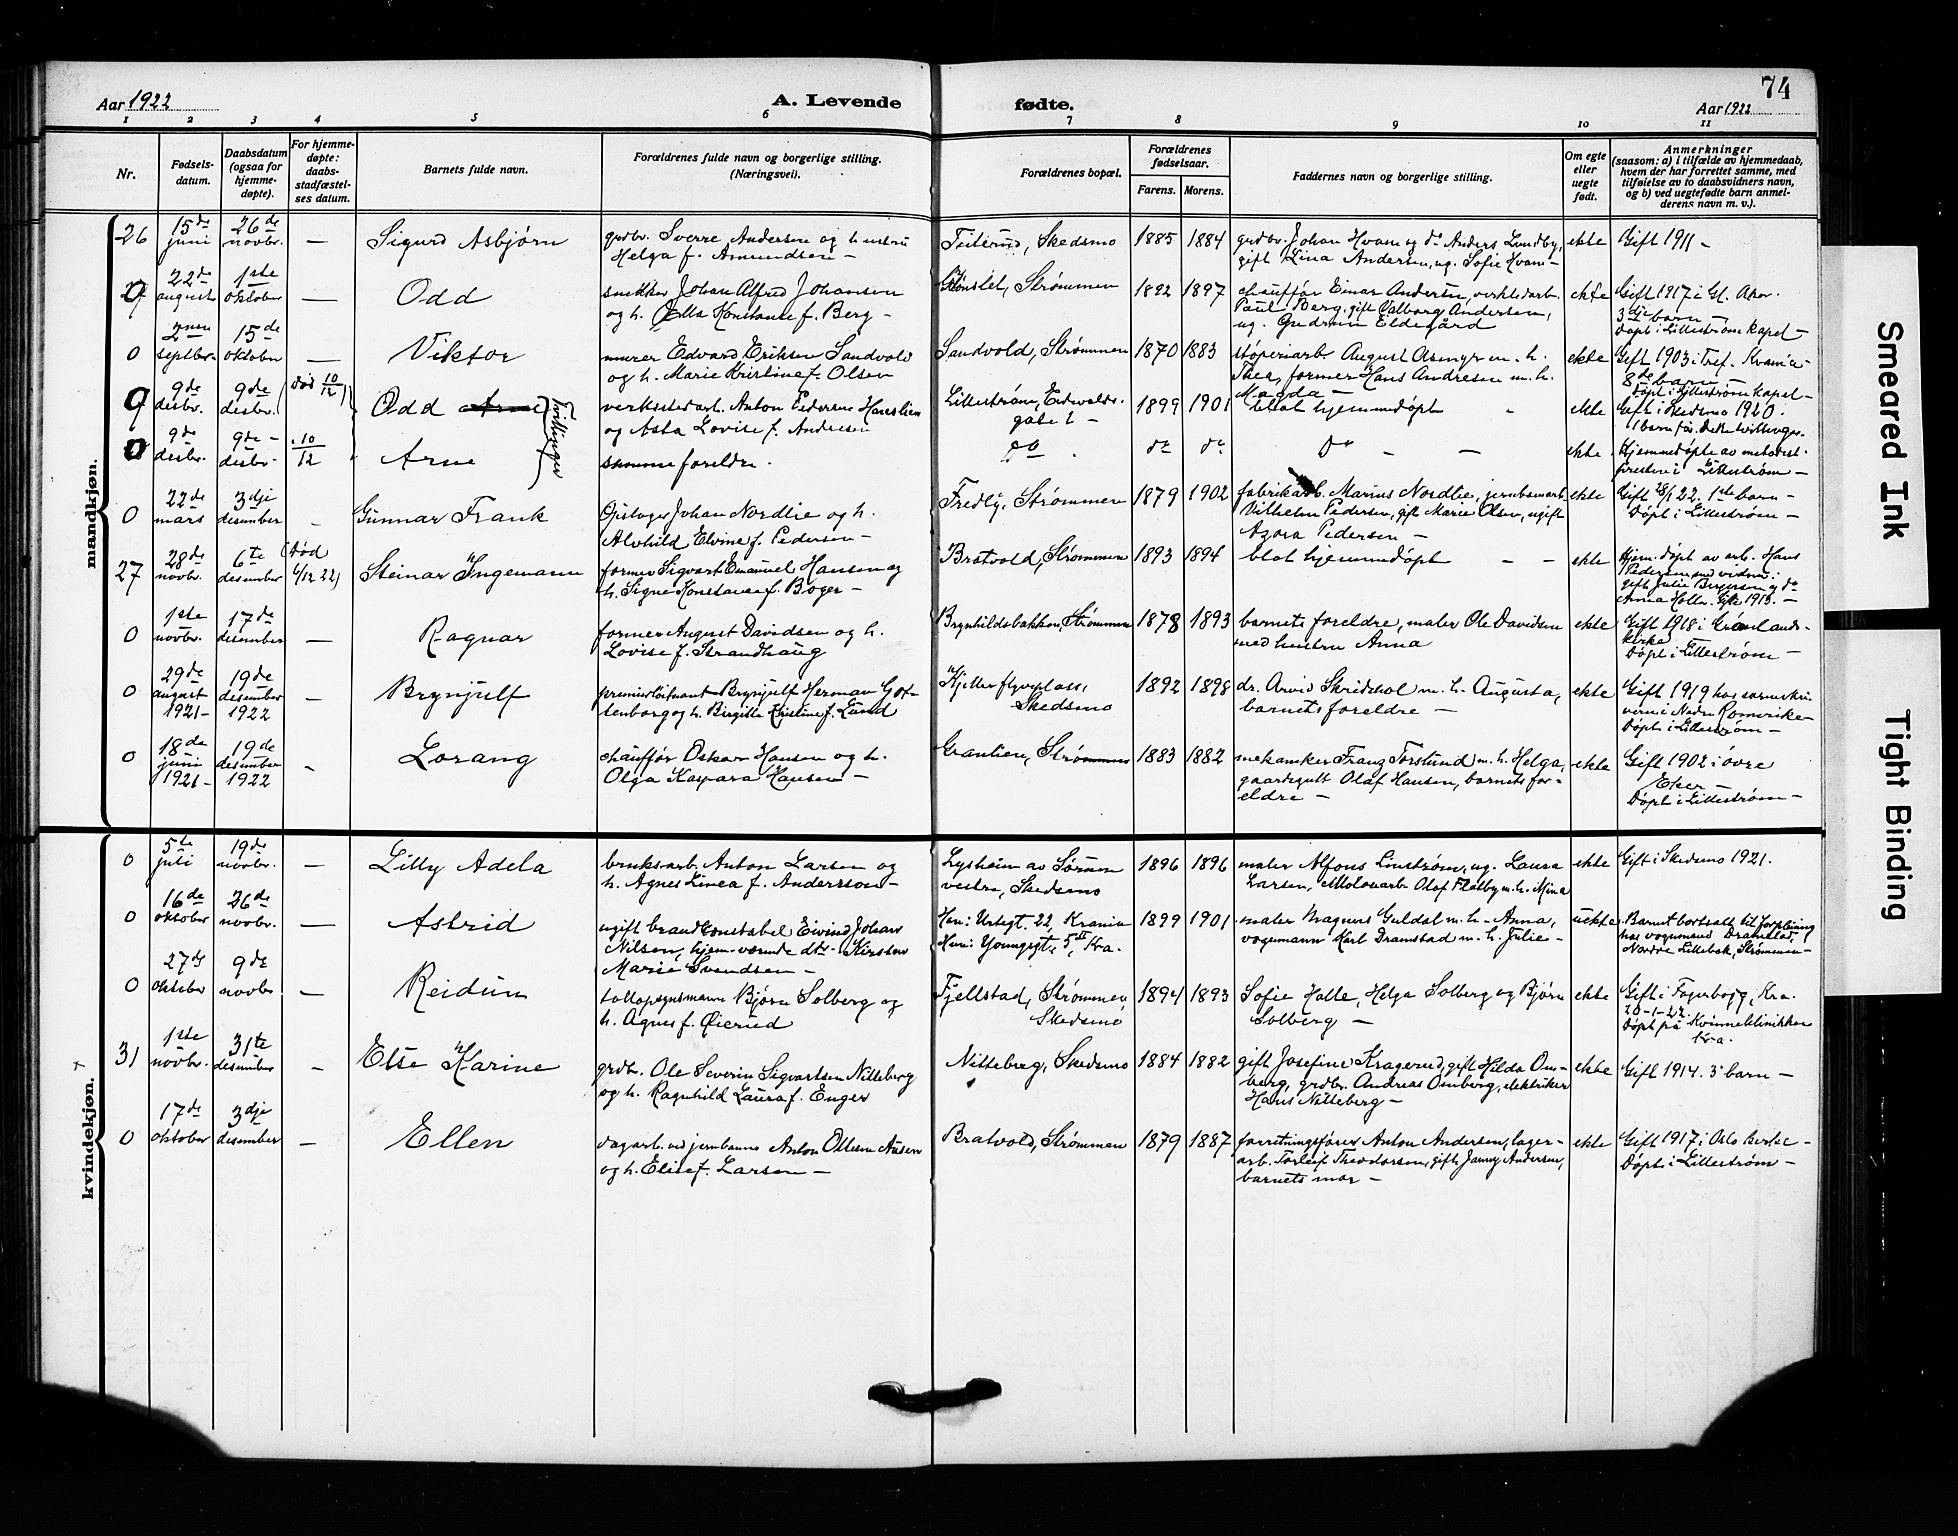 74
Aar 1922
A. Levende
fødte.
Aar 1922
1 2 3 4 5 6 7 8 9 10 11
Nr.
Fødsels-
datum.
Daabsdatum
(ogsaa for
hjemme-
døpte).
For hjemme-
døpte:
daabs-
stadfæstel-
ses datum.
Barnets fulde navn.
Forældrenes fulde navn og borgerlige stilling.
(Næringsvei).
Forældrenes bopæl.
Forældrenes
fødselsaar.
Farens. Morens.
Faddernes navn og borgerlige stilling.
Om egte
eller
uegte
født.
Anmerkninger
(saasom: a) i tilfælde av hjemmedaab,
hvem der har forrettet samme, med
tilføielse av to daabsvidners navn,
og b) ved uegtefødte barn anmel-
derens navn m. v.).
mandkjøn.
26
15de
juni
26de
novbr.
—
Sigurd Asbjørn
grdbr. Sverre Andersen og hustru
Helga f. Amundsen —
Skedsmo
1885 1884
grdbr. Johan Hvam og do Anders Lundby,
gift Lina Andersen, ug. Sofie Hvam —
ekte
Gift 1911 —
22de
august
1ste
oktober
—
Odd
snekker Johan Alfred Johansen
og h. Konstanse f. Berg —
Strømmen
1892 1897
chauffør Einar Andersen, verkstedarb.
Paul Berg, gift Valborg Andersen,
ug. Gudrun Eldegård
ekte
Gift 1917 i Gl. Aker.
3die barn —
Døpt i Lillestrøm kapel —
0
2nen
septbr.
15de
oktober
—
Viktor
murer Edvard Eriksen Sandvold
og h. Marie Kristine f. Olsen
Sandvold, Strømmen
1870 1883
støperiarb. August Asmyr m. h.
Thea, former Hans Andresen m. h.
Magda —
ekte
Gift 1903 i Tref. Kr.ania —
8de barn —
Døpt i Lillestrøm kapel —
9de
desbr.
9de
desbr.
(død 10/12)
Odd Arne
Tvillinger
verkstedarb. Anton Pedersen Haneslien
og Asta Lovise f. Andresen
Lillestrøm,
gate 2 —
1899 1901
blot hjemmedøpt —
ekte
Gift i Skedsmo 1920.
1 barn før. Dette tvillinger.
0
9de
desbr.
9de
desbr.
10/12
Arne
samme foreldre.
do
do do
do — —
ekte
Hjemmedøpte av metodist-
presten i Lillestrøm —
0
22de
mars
3dje
desember
-
Gunnar Frank
Opsloger Johan Nordlie og h.
Alvhild Elvine f. Pedersen —
Fredly, Strømmen
1879 1902
fabrikarb. Marius Nordlie, jernbanearb.
Vilhelm Pedersen, gift Marie Olsen, ugift
Azora Pedersen —
ekte
Gift 28/1 22. 1ste barn —
Døpt i Lillestrøm —
27
28de
novbr.
6te
desember
(død
6/12 22)
Steinar Ingemann
former Sigvart Emanuel Hansen og
h. Signe Konstanse f. Boger —
Bratvold, Strømmen
1893 1894
blot hjemmedøpt — —
ekte
Hjem. døpt av arb. Hans
Pedersen med vidner:
gift Julie Birgersen og do
Anna Holter. Gift 1913. —
0
1ste
novbr.
17de
desember
—
Ragnar
former August Davidsen og h.
Lovise f. Strandhaug
Brynhildsbakken, Strømmen
1878 1893
barnets foreldre, maler Ole Davidsen
med hustru Anna
ekte
Gift 1918 i Grønlands-
kirke
Døpt i Lillestrøm —
0
29de
august
1921 —
19de
desember
1922
—
Brynjulf
premierløitnant Brynjulf Herman Got-
tenborg og h. Birgitte Kristine f. Lund
Kjeller flyveplass,
Skedsmo
1892 1898
dr. Arvid Skridshol m. h. Augusta,
barnets foreldre —
ekte
Gift 1919 hos sorenskri-
veren i Nedre Romerike —
Døpt i Lillestrøm —
0
18de
juni
1921 —
19de
desember
1922
-
Lorang
chauffør Oskar Hansen og h.
Olga Kaspara Hansen —
Granlien, Strømmen
1883 1882
mekaniker Franz Torslund m. h. Helga,
gaardsgutt Olaf Hansen, barnets for-
eldre —
ekte
Gift 1902 i øvre
Eker —
Døpt i Lillestrøm —
kvindekjøn.
0
5te
juli
19de
novbr.
—
Lilly Adela
bruksarb. Anton Larsen og
h. Agnes Linea f. Andersson —
Lysheim av Sørum
vestre, Skedsmo
1896 1896
maler Alfons Linstrøm, ug. Laura
Larsen, Olaf Flatby m. h. Mina
ekte
Gift i Skedsmo 1921.
0
16de
oktober
26de
novbr.
—
Astrid
ugift brandkonstabel Eivind Johan
Nilsen, hjem.værende dtr. Kirsten
Marie Svendsen —
Han: Urtegt. 22, Krania
Hun: Youngsgt. 5 II Kra.
1899 1901
maler Magnus Guldal m. h. Anna,
vognmann Karl Dramstad m. h. Julie —
uekte
Barnet bortsatt til forpleining
hos vognmand Dramstad,
Nordre Lillebæk, Strømmen —
0
27de
oktober
9de
novbr
—
Reidun
tollopsynsmann Bjørn Solberg og
h. Agnes f. Øierud
Fjellstad, Strømmen,
Skedsmo
1894 1893
Sofie Halle, Helga Solberg og Bjørn
Solberg —
ekte
Gift i Fagerborg, Kra.
20-1-22.
Døpt på Kvinneklinikken
Kra.
31
1ste
novbr.
31te
desember
-
Else Karine
grdbr. Ole Severin Sigvartsen Nitteberg
og h. Ragnhild Laura f. Enger
Nitteberg, Skedsmo
1884 1882
gift Josefine Kragerud, gift Hilda Om-
berg, grdbr. Andreas Omberg, elektriker
Hans Nitteberg —
ekte
Gift 1914. 3 barn —
0
17de
oktober
3dje
desember
—
Ellen
dagarb. ved jernbanen Anton Ottesen Aasen
og h. Elise f. Larsen —
Bratvold, Strømmen
1879 1887
forretningsfører Anton Andersen, lager-
arb. Torleif Theodorsen, gift Janny Andersen,
barnets mor —
ekte
Gift 1917 i Oslo kirke —
Døpt i Lillestrøm —
Smeared Ink
Tight Binding